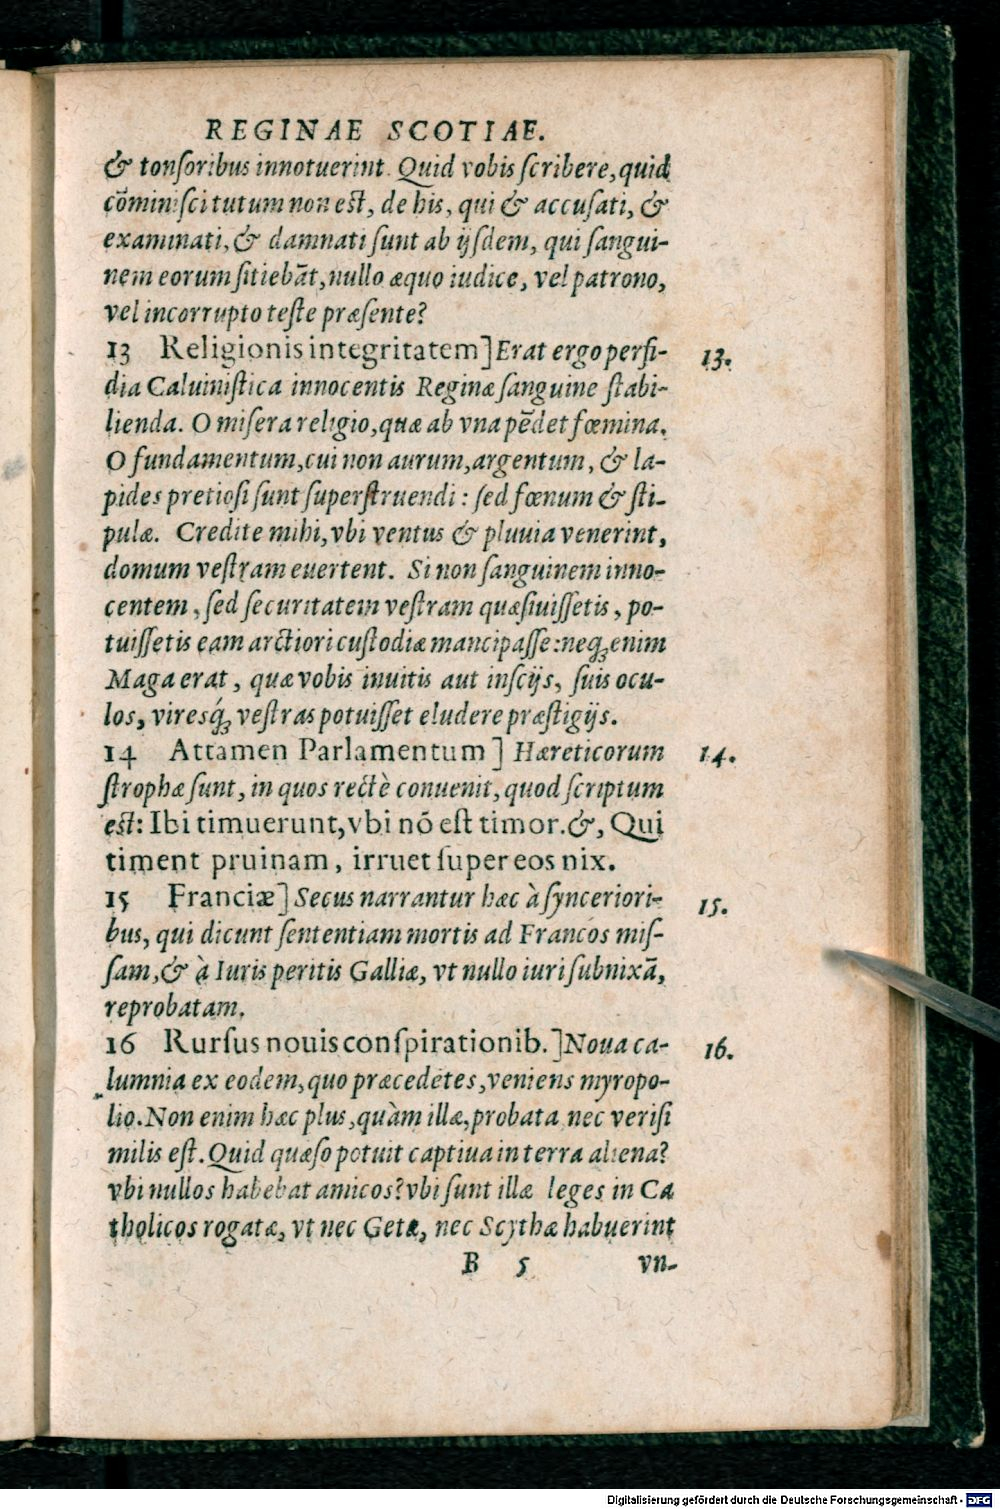 REGINAE SCOTIAE.
& tonſoribus innotuerint. Quid vobis ſcribere, quid
cōminiſci tutum non eſt, de his, qui & accuſati, &
examinati, & damnati ſunt ab ijſdem, qui ſangui-
nem eorum ſitiebāt, nullo æquo iudice, vel patrono,
vel incorrupto teſte præſente?
13 Religionis integritatem] Erat ergo perfi- 13.
dia Caluiniſtica innocentis Reginæ ſanguine ſtabi-
lienda. O miſera religio, quæ ab vna pēdet fœmina.
O fundamentum, cui non aurum, argentum, & la-
pides pretioſi ſunt ſuperſtruendi: ſed fœnum & ſti-
pulæ. Credite mihi, vbi ventus & pluuia venerint,
domum veſtram euertent. Si non ſanguinem inno-
centem, ſed ſecuritatem veſtram quæſiuiſſetis, po-
tuiſſetis eam arctiori cuſtodiæ mancipaſſe: neq; enim
Maga erat, quæ vobis inuitis aut inſcijs, ſuis ocu-
los, viresq́; veſtras potuiſſet eludere præſtigijs.
14 Attamen Parlamentum] Hæreticorum 14.
ſtrophæ ſunt, in quos rectè conuenit, quod ſcriptum
eſt: Ibi timuerunt, vbi nō eſt timor. &, Qui
timent pruinam, irruet ſuper eos nix.
15 Franciæ] Secus narrantur hæc à ſynceriori- 15.
bus, qui dicunt ſententiam mortis ad Francos miſ-
ſam, & à Iuris peritis Galliæ, vt nullo iuri ſubnixā,
reprobatam.
16 Rurſus nouis conſpirationib.] Noua ca- 16.
lumnia ex eodem, quo præcedētes, veniens myropo-
lio. Non enim hæc plus, quàm illæ, probata nec veriſi
milis eſt. Quid quæſo potuit captiua in terra aliena?
vbi nullos habebat amicos? vbi ſunt illæ leges in Ca
tholicos rogatæ, vt nec Getæ, nec Scythæ habuerint
B 5 vn-
Digitalisierung gefördert durch die Deutsche Forschungsgemeinschaft - DFG